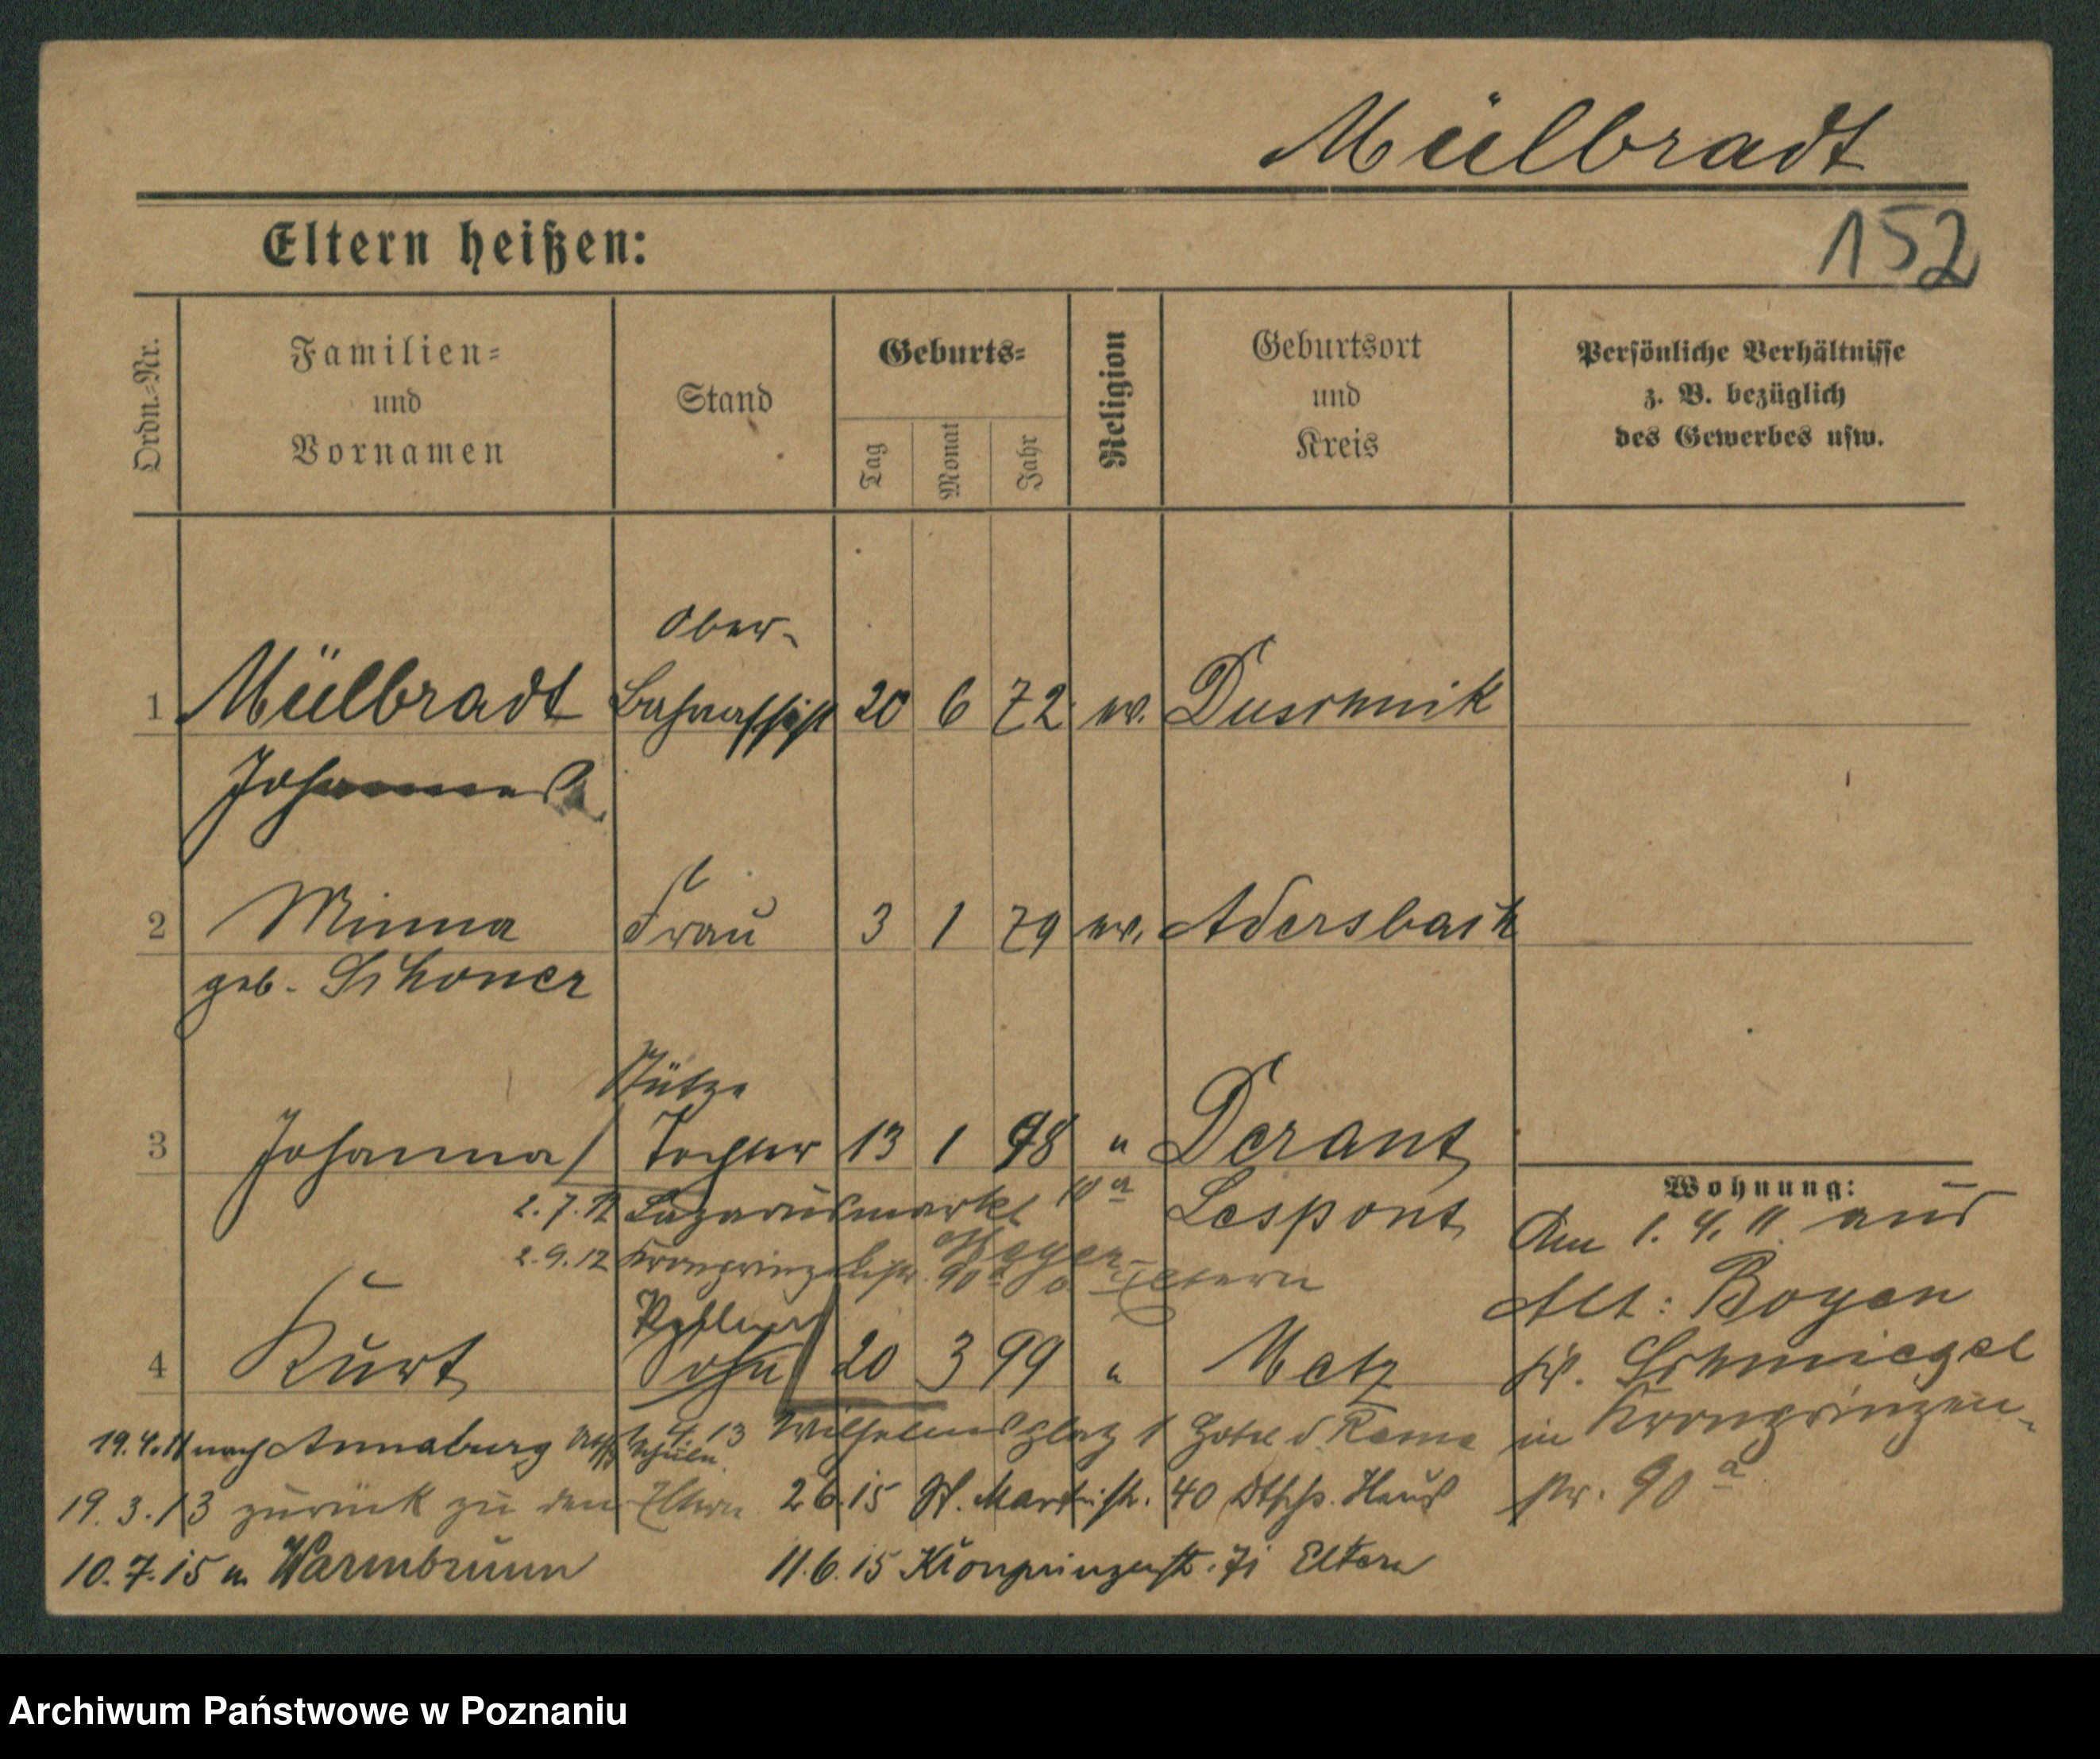 Mülbradt
152
Eltern heißen:
Ordn.=Nr.
Familien=
und
Vornamen
Stand
Geburts=
Tag
Monat
Jahr
Religion
Geburtsort
und
Kreis
Persönliche Verhältnisse
z. B. bezüglich
des Gewerbes usw.
Ober-
1 Mülbradt Bahnassist 20 6 72 ev. Duschnik
Johannes
2 Minna Frau 3 1 79 ev. Adersbach
geb. Schoner
Stütze
3 Johanna Tochter 13 1 98 " Derant
Lespont
2.7.12 Lazarusmarkt 10a
2.9.12 Kronprinzenstr. 90a Eltern
4 Kurt Sohn 20 3 99 " Metz
Wohnung:
Am 1.4.11. aus
Alt: Boyen
Kr. Schmiegel
in Kronprinzen-
str. 90a
19.4.11 nach Annaburg
1.4.13 Wilhelmsplatz 1 Hotel d. Rome
19.3.13 zurück zu den Eltern
2.6.15 St. Martinstr. 40 Dtsch. Haus
10.7.15 n. Warmbrunn
11.6.15 Kronprinzenstr. 71 Eltern
Archiwum Państwowe w Poznaniu